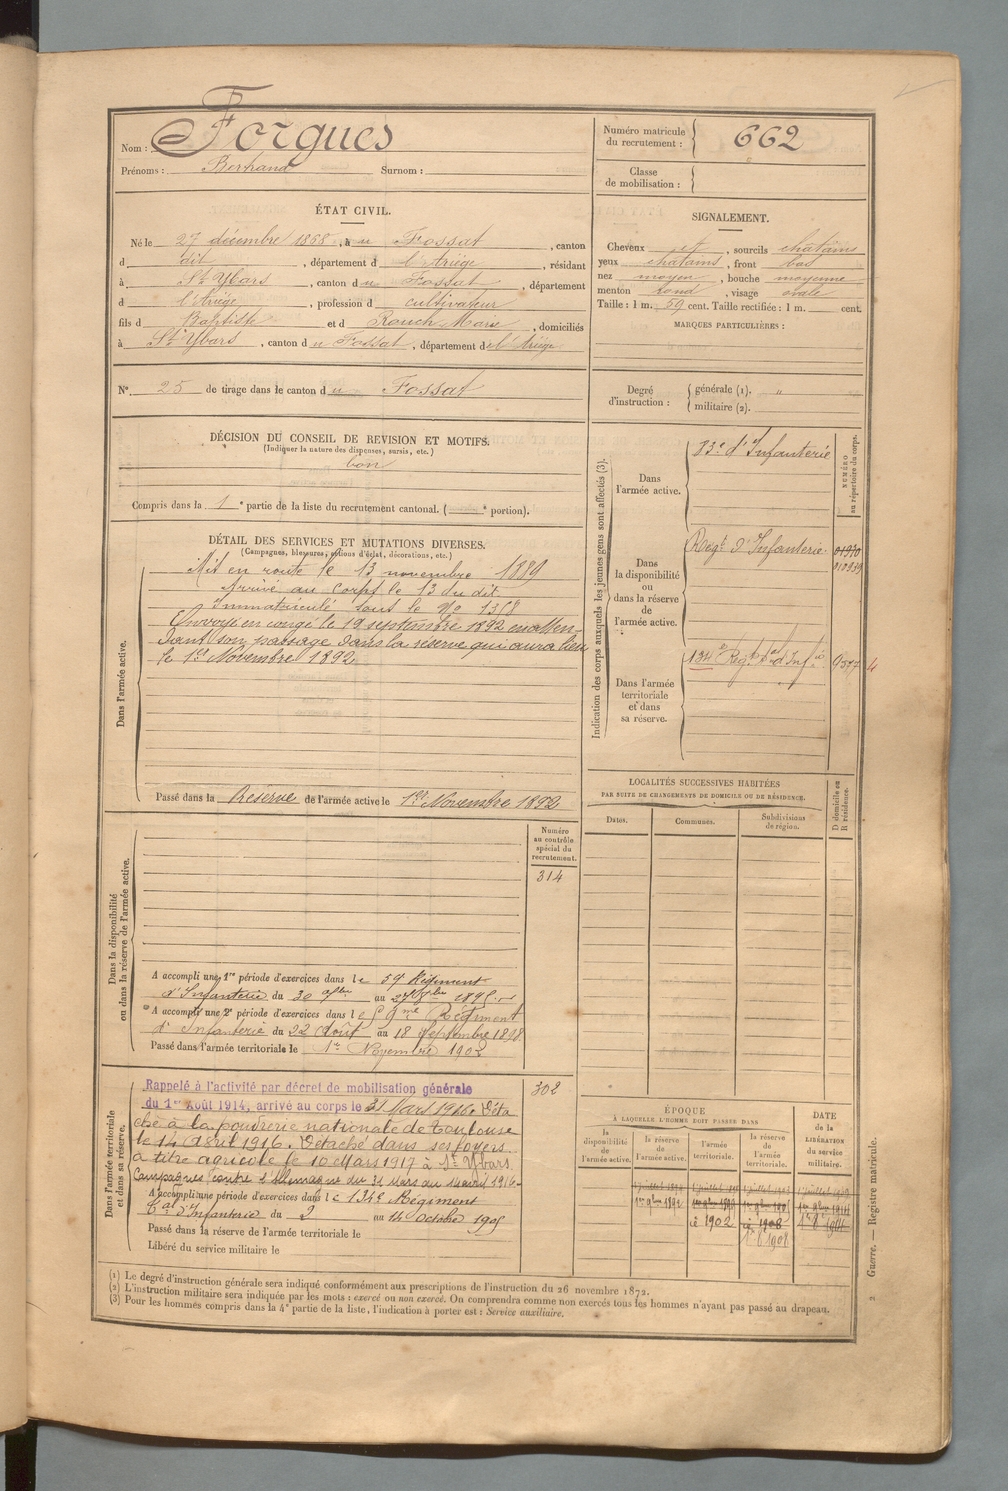 Nom : Forgues
Prénoms : Bertrand Surnom :
Numéro matricule du recrutement : 662
Classe de mobilisation :
ÉTAT CIVIL.
Né le 27 décembre 1868, à u Fossat, canton
d dit, département d l'Ariège, résidant
à St Ybars, canton d u Fossat, département
d l'Ariège, profession d cultivateur
fils d Baptiste et d Rouch Marie, domiciliés
à St Ybars, canton d u Fossat, département de l'Ariège
SIGNALEMENT.
Cheveux et, sourcils châtains
yeux châtains, front bas
nez moyen, bouche moyenne
menton rond, visage ovale
Taille : 1 m. 59 cent. Taille rectifiée : 1 m. cent.
MARQUES PARTICULIÈRES :
N° 25 de tirage dans le canton d u Fossat
Degré d'instruction : générale (1). "
militaire (2).
DÉCISION DU CONSEIL DE REVISION ET MOTIFS.
(Indiquer la nature des dispenses, sursis, etc.)
bon
Compris dans la 1e partie de la liste du recrutement cantonal. ( e portion).
DÉTAIL DES SERVICES ET MUTATIONS DIVERSES.
(Campagnes, blessures, actions d'éclat, décorations, etc.)
Dans l'armée active.
Mit en route le 13 novembre 1889
Arrivé au corps le 13 du dit
Immatriculé sous le No
Envoyé en congé le 19 septembre 1892 en atten-
dant son passage dans la réserve qui aura lieu
le 1er Novembre 1892
Passé dans la Réserve de l'armée active le 1er Novembre 1892
Indication des corps auxquels les jeunes gens sont affectés (3).
NUMÉRO au répertoire du corps.
Dans l'armée active.
83e d'Infanterie
Dans la disponibilité ou dans la réserve de l'armée active.
Régt d'Infanterie
Dans l'armée territoriale et dans sa réserve.
134e Régt tal d'Infie
LOCALITÉS SUCCESSIVES HABITÉES
PAR SUITE DE CHANGEMENTS DE DOMICILE OU DE RÉSIDENCE.
Dates.
Communes.
Subdivisions de région.
D domicile ou R résidence.
Dans la disponibilité ou dans la réserve de l'armée active.
Numéro au contrôle spécial du recrutement.
314
A accompli une 1re période d'exercices dans le 59e Régiment
d'Infanterie du 30 au
A accompli une 2e période d'exercices dans le 59me Régiment
d'Infanterie du 22 Août au 18 Septembre 1898
Passé dans l'armée territoriale le 1er Novembre 1902
Dans l'armée territoriale et dans sa réserve.
302
Rappelé à l'activité par décret de mobilisation générale
du 1er Août 1914, arrivé au corps le 31 Mars 1916. Déta
ché à la poudrerie nationale de Toulouse
le 14 Avril 1916. Détaché dans ses foyers
à titre agricole le 10 Mars 1917 à St Ybars
Campagnes contre l'Allemagne du 31 Mars au 14 avril 1916
A accompli une période d'exercices dans le 134e Régiment
tal d'Infanterie du 2 au 14 Octobre 1905
Passé dans la réserve de l'armée territoriale le
Libéré du service militaire le
ÉPOQUE
À LAQUELLE L'HOMME DOIT PASSER DANS
la disponibilité de l'armée active.
la réserve de l'armée active.
l'armée territoriale.
la réserve de l'armée territoriale.
DATE de la LIBÉRATION du service militaire.
1er 9bre 1892
1902
1908
(1) Le degré d'instruction générale sera indiqué conformément aux prescriptions de l'instruction du 26 novembre 1872.
(2) L'instruction militaire sera indiquée par les mots : exercé ou non exercé. On comprendra comme non exercés tous les hommes n'ayant pas passé au drapeau.
(3) Pour les hommes compris dans la 4e partie de la liste, l'indication à porter est : Service auxiliaire.
2 Guerre. — Registre matricule.